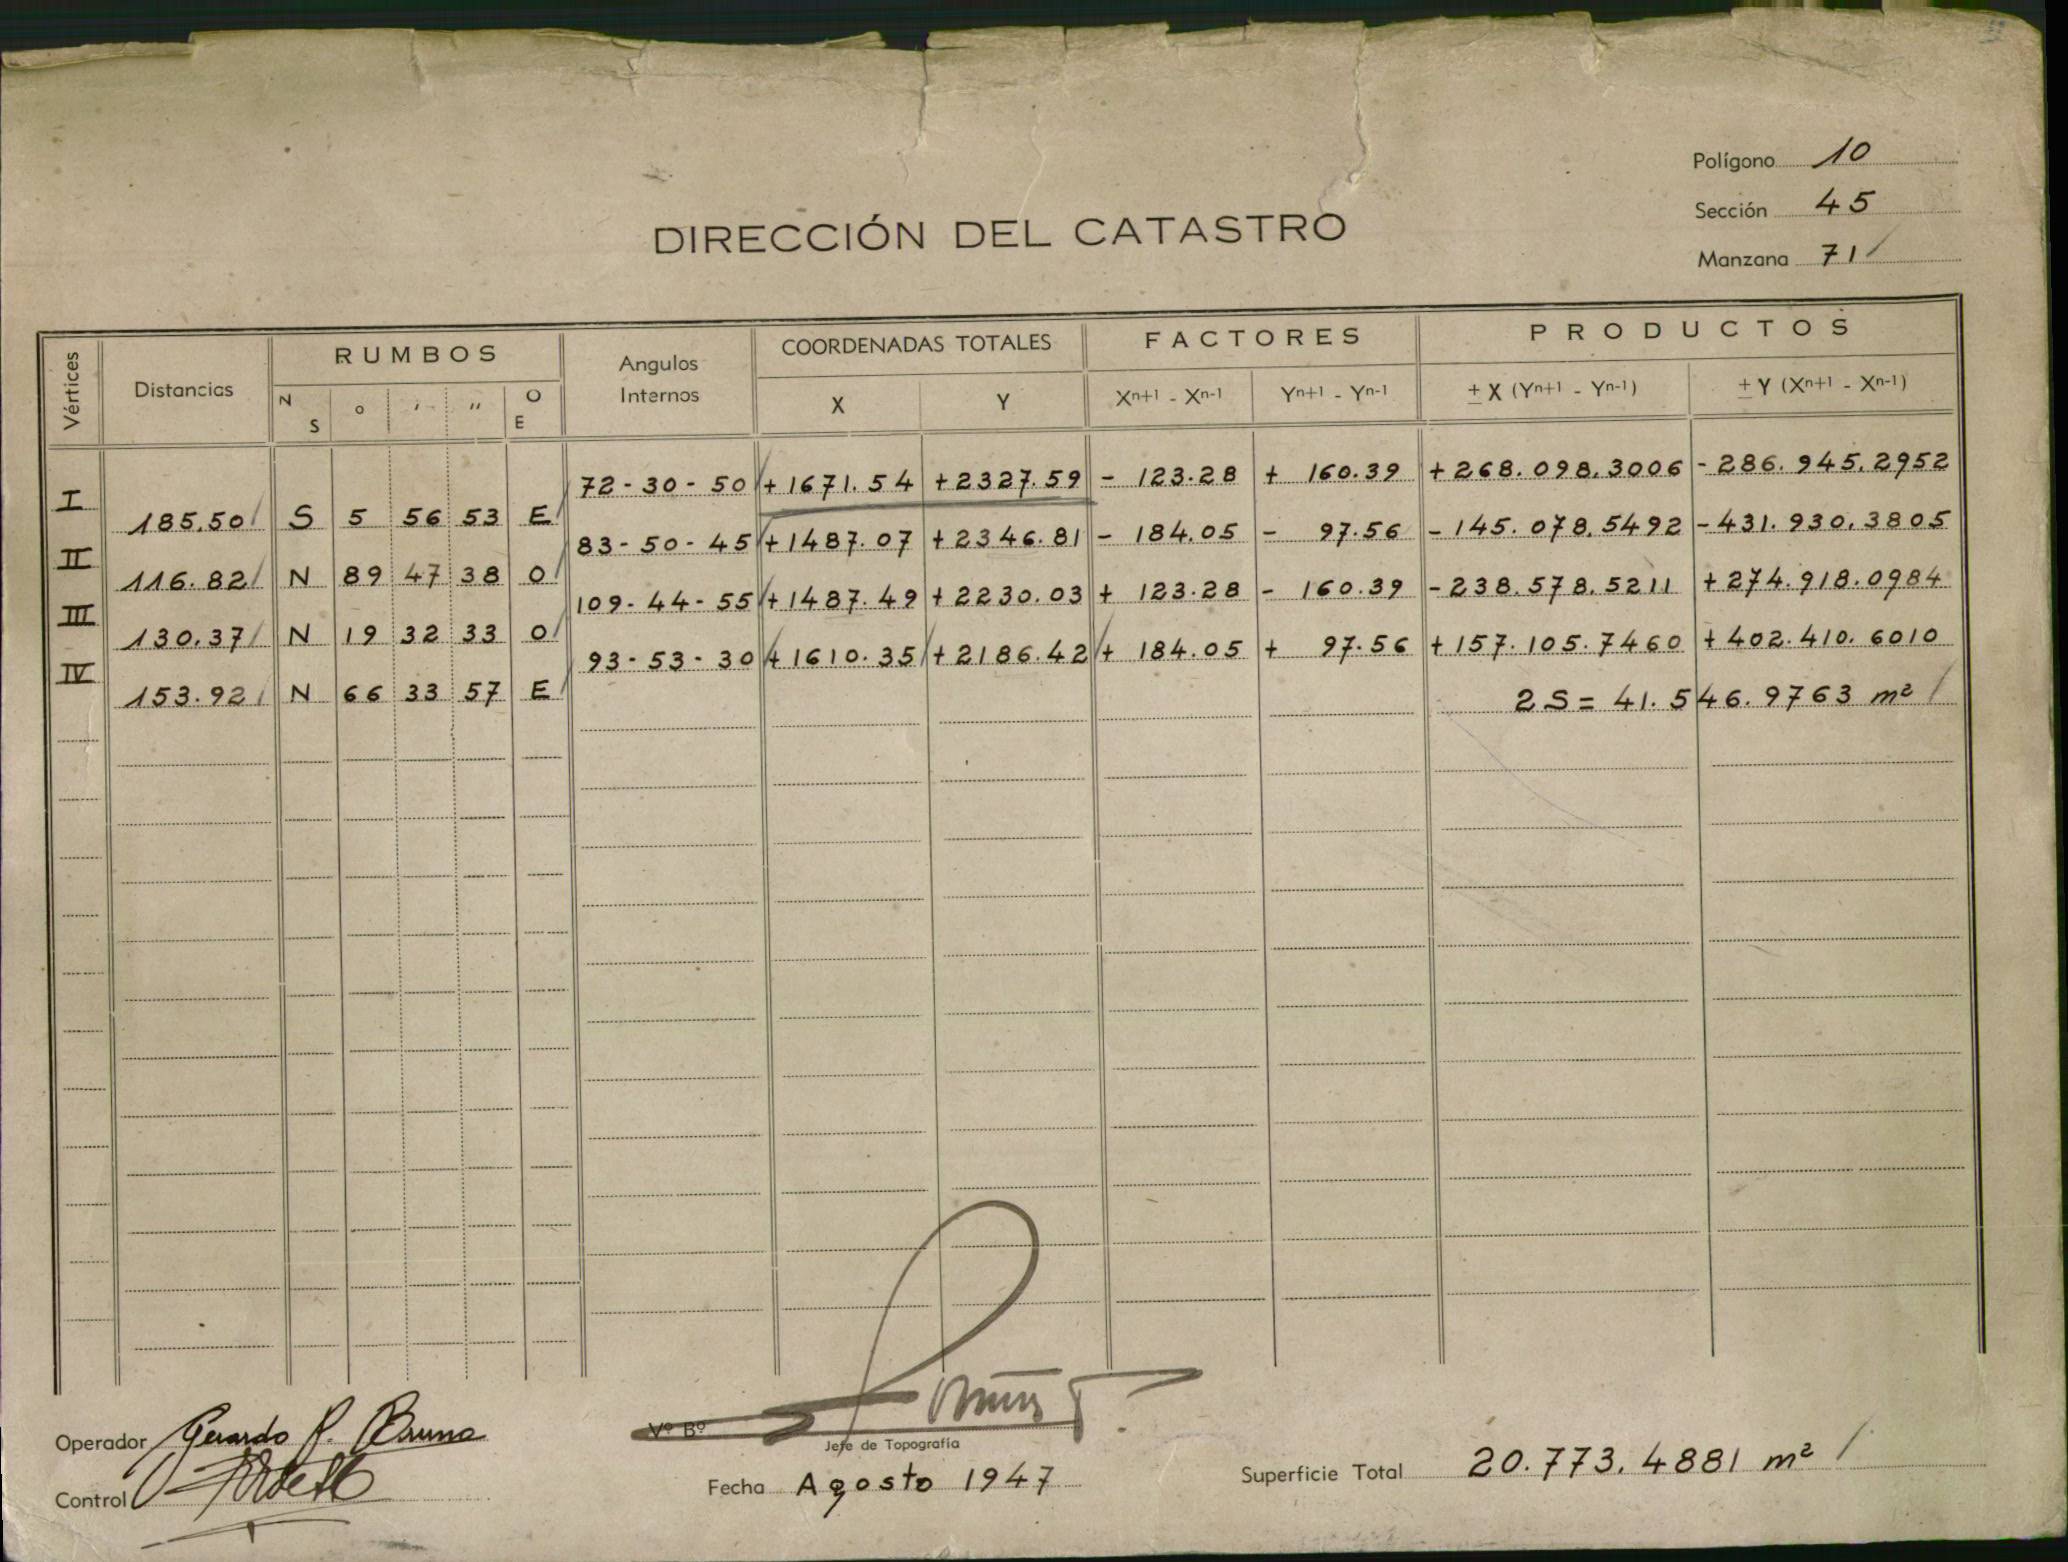 Polígono 10
Sección 45
Manzana 71
DIRECCIÓN DEL CATASTRO
Vértices Distancias RUMBOS Angulos Internos COORDENADAS TOTALES FACTORES PRODUCTOS
N S o ' '' O E X Y Xn+1 - Xn-1 Yn+1 - Yn-1 ± X (Yn+1 - Yn-1) ± Y (Xn+1 - Xn-1)
72-30-50 +1671.54 +2327.59 - 123.28 + 160.39 +268.098,3006 -286.945,2952
I 185.50 S 5 56 53 E
83-50-45 +1487.07 +2346.81 - 184.05 - 97.56 -145.078,5492 -431.930,3805
II 116.82 N 89 47 38 O
109-44-55 +1487.49 +2230.03 + 123.28 - 160.39 -238.578,5211 +274.918.0984
III 130.37 N 19 32 33 O
93-53-30 +1610.35 +2186.42 + 184.05 + 97.56 +157.105.7460 +402.410.6010
IV 153.92 N 66 33 57 E
2S = 41.546.9763 m²
Operador Gerardo P. Bruno
Vº Bº
Jefe de Topografía
Control
Fecha Agosto 1947
Superficie Total 20.773.4881 m²